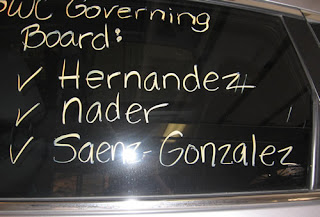 SWC Governing
Board:
✓ Hernandez
✓ nader
✓ Saenz-Gonzalez